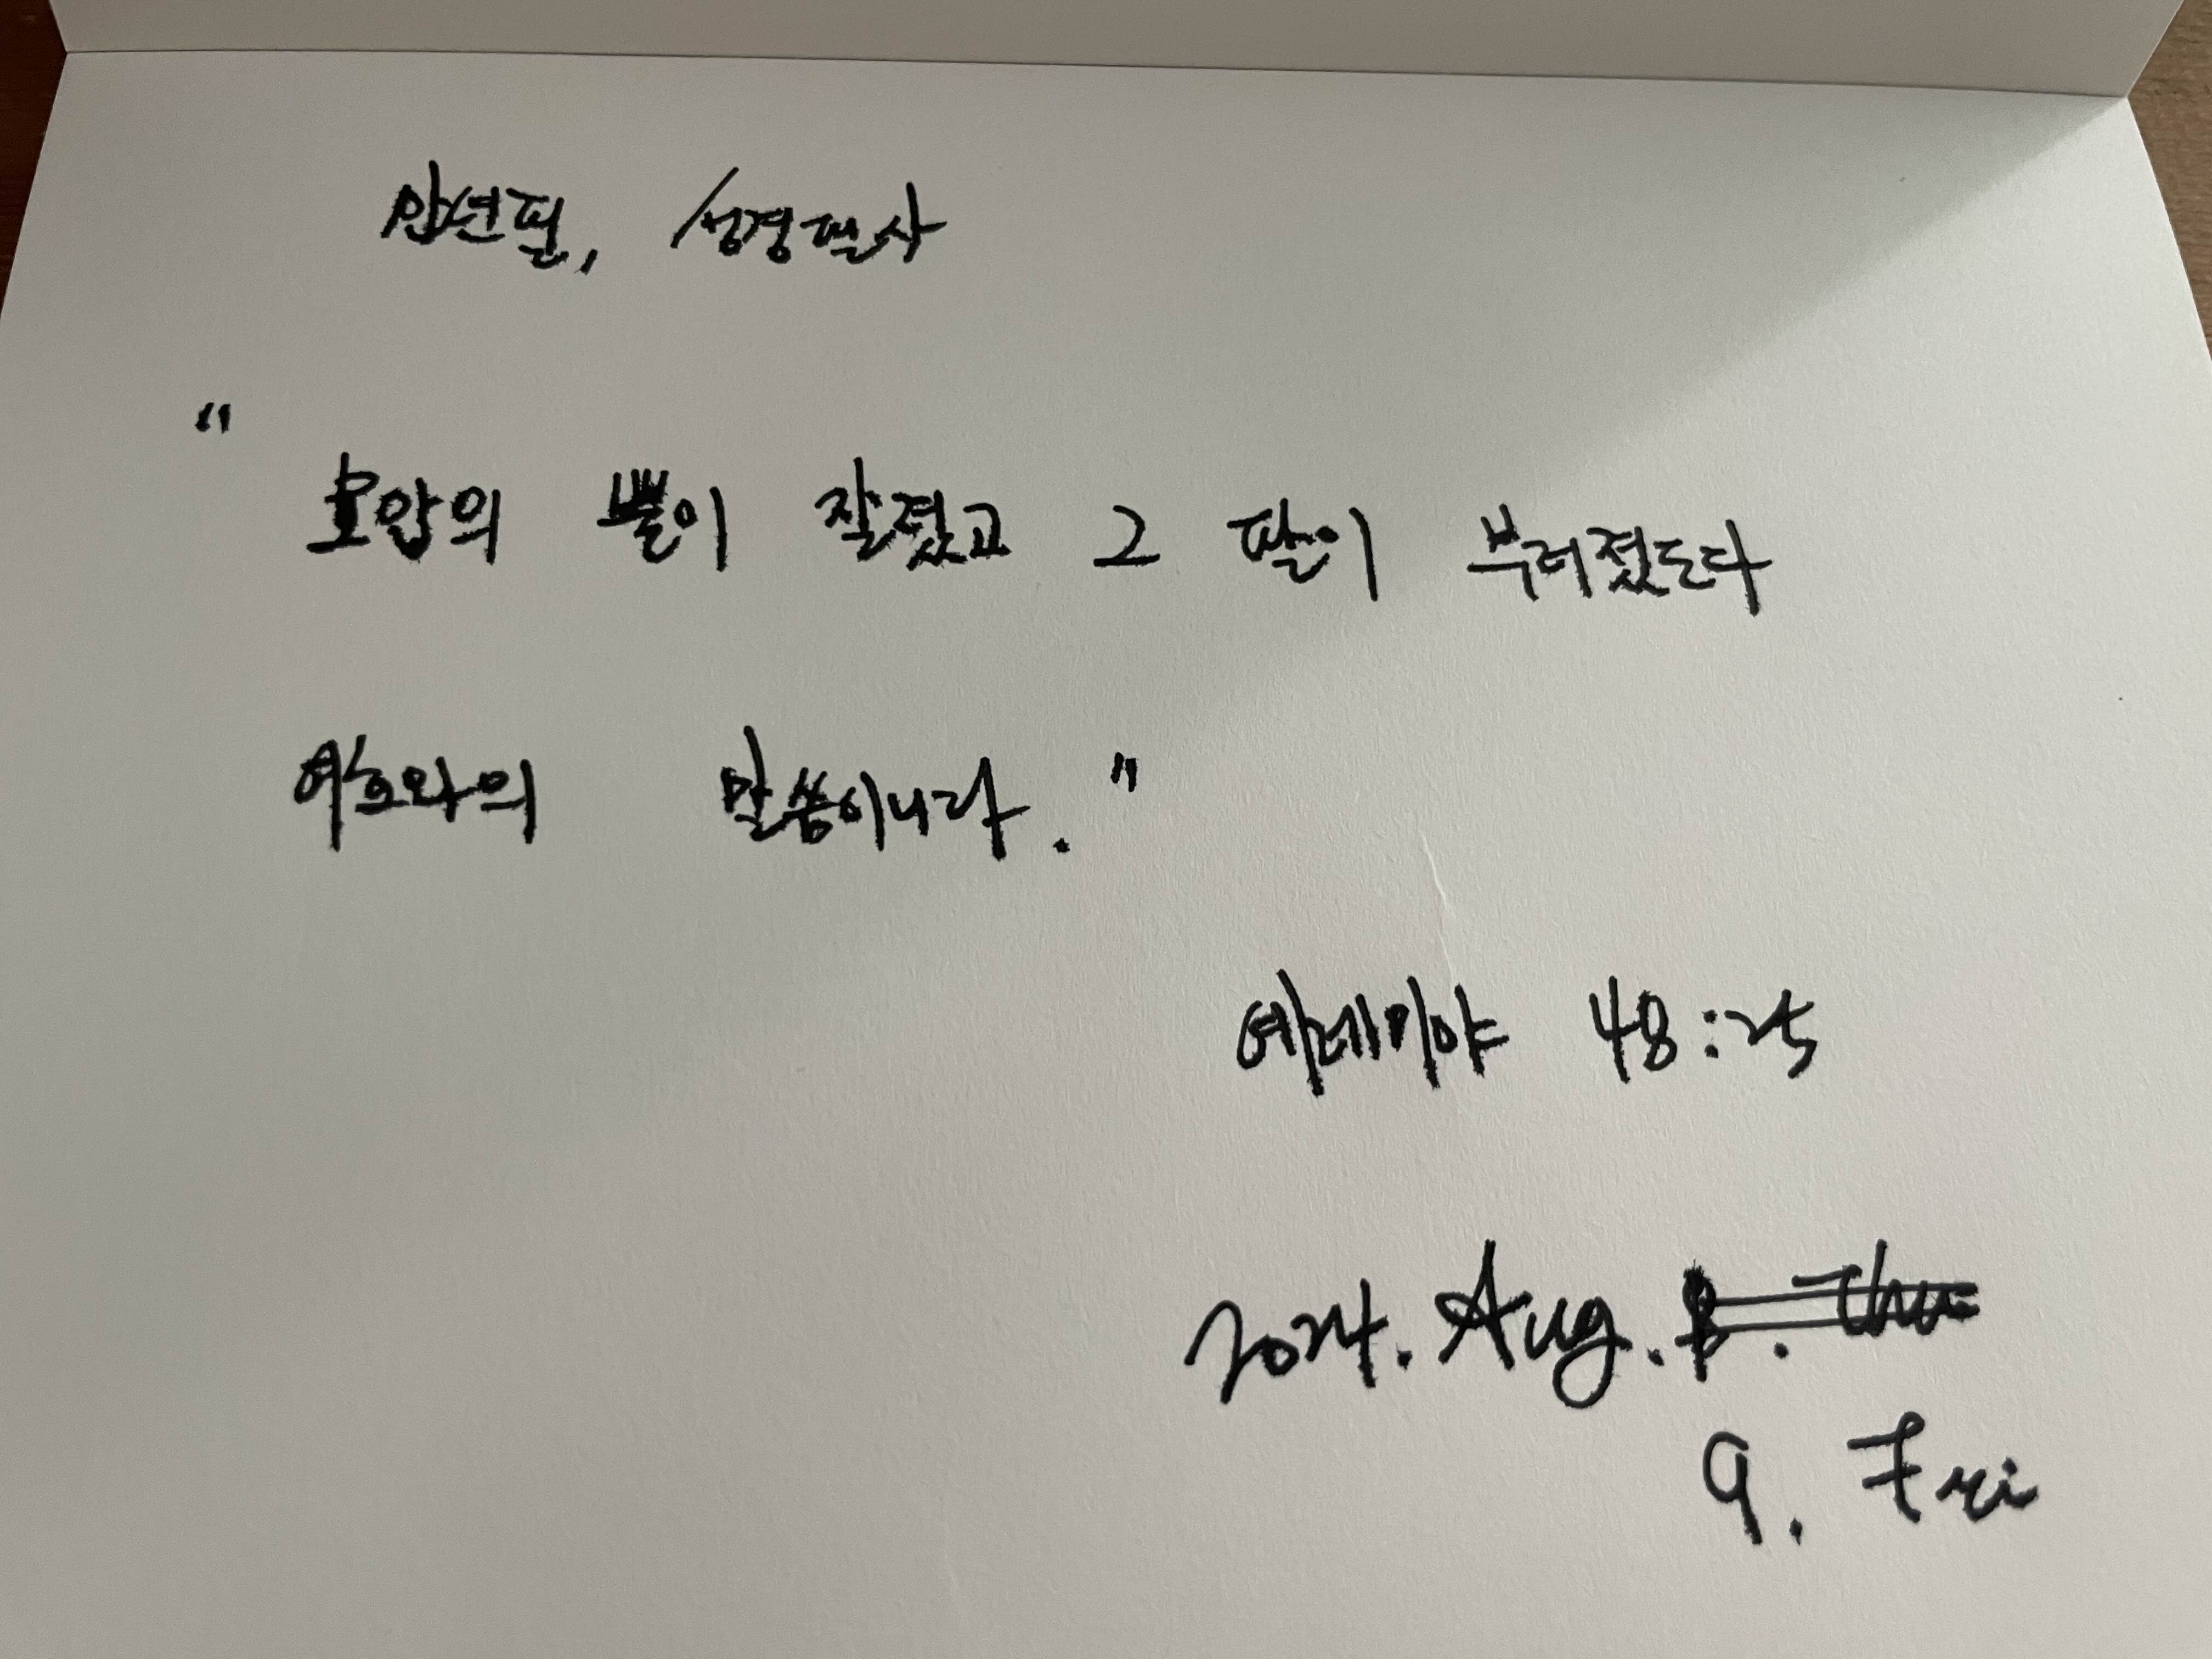 만년필, 성경필사
"
모압의 뿔이 잘렸고 그 팔이 부러졌도다
여호와의 말씀이니라."
예레미야 48:25
2024. Aug. 8. Thu
9. Fri